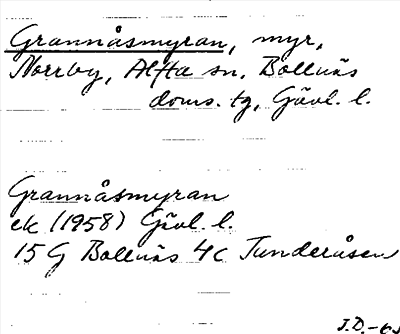 Grannåsmyran, myr,
Norrby, Alfta sn. Bollnäs
doms. tg, Gävl. l.
Grannåsmyran
ek (1958) Gävl. l.
15 G Bollnäs 4c Tunderåsen
J.D.-63